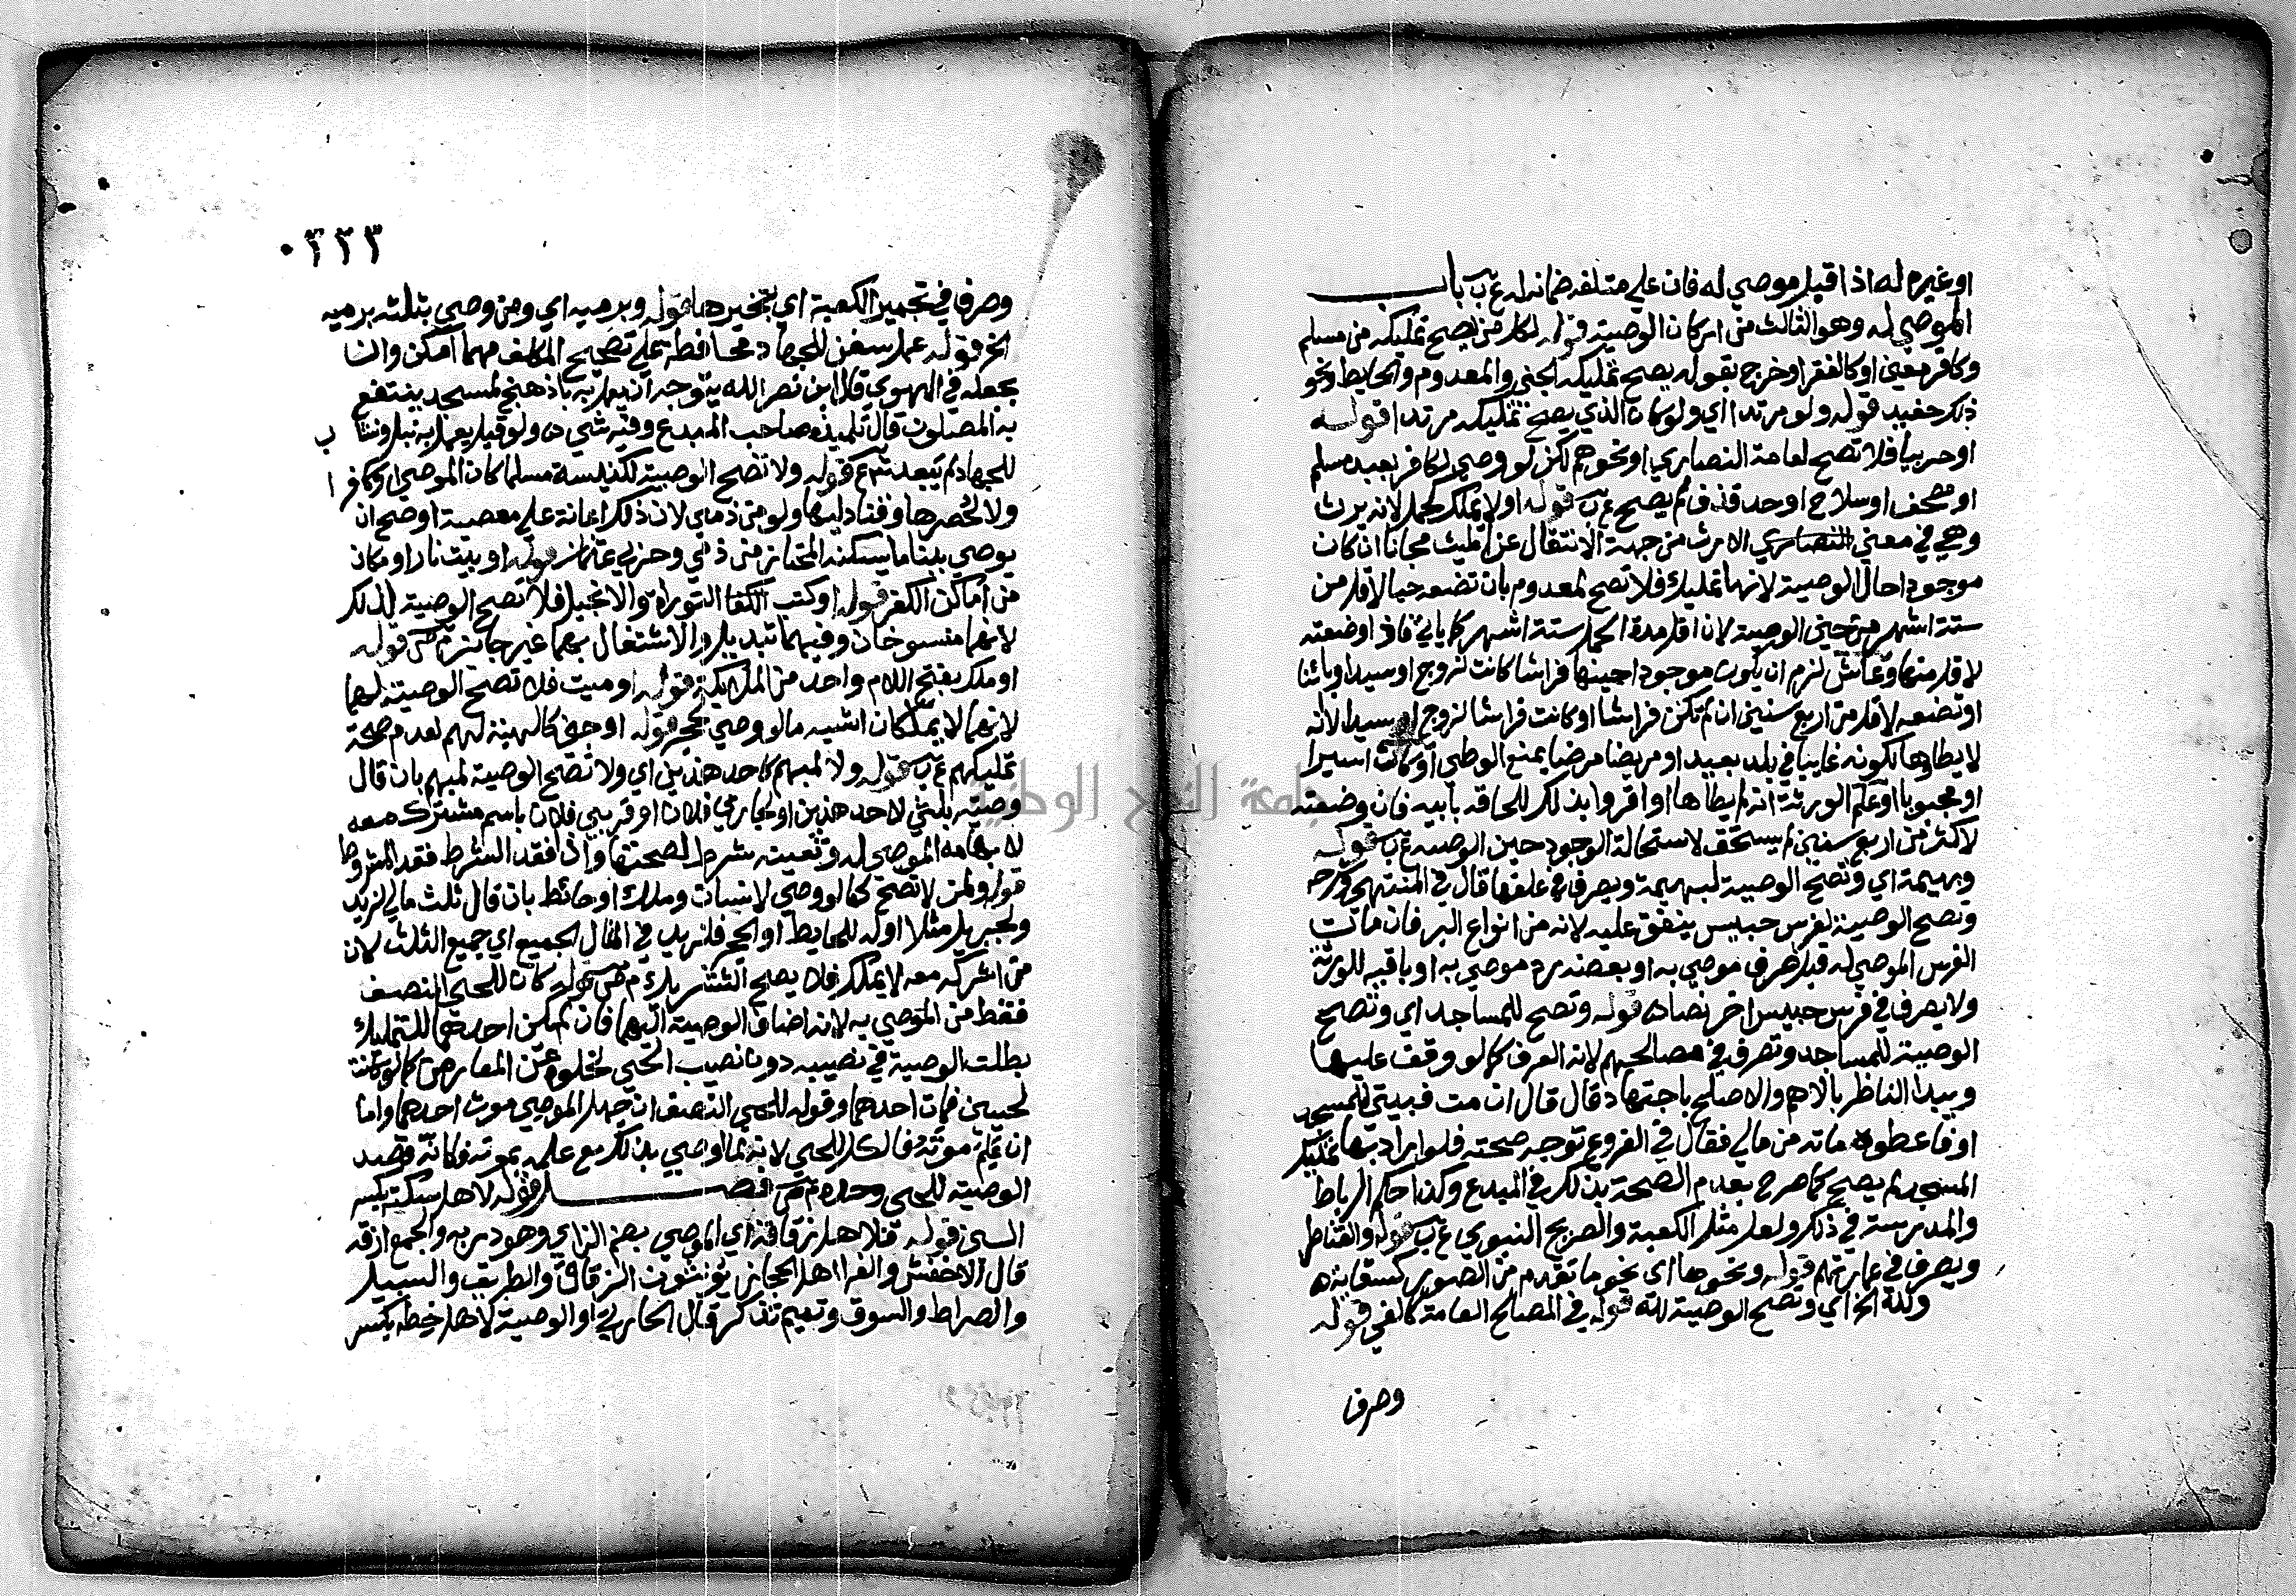 او غيره له اذا قبله موصي له فان علي متلفه ضمانه له ع ب باب
الموصي له وهو الثالث من اركان الوصية قوله لكل من يصح تمليكه من مسلم
وكافر معين او كالفقرا وخرج بقوله يصح تمليكه الجني والمعدوم والحايط ونحو
ذلك حفيد قوله ولو مرتدا اي ولو كان الذي يصح تمليكه مرتدا قوله
او حربيا فلا تصح لعامة النصاري او نحوهم لكن لو وصي لكافر بعبد مسلم
او مصحف او سلاح او حد قذف لم يصح ع ب قوله او لا يملك كحمل لانه يرث
وهي في معني الارث من جهة الانتقال عن الميت مجانا ان كان
موجودا حال الوصية لانها تمليك فلا تصح لمعدوم بان تضعه حيا لاقل من
ستة اشهر من حين الوصية لان اقل مدة الحمل ستة اشهر كما ياتي فاذا وضعته
لاقل منها وعاش لزم ان يكون موجودا حينها فراشا كانت لزوج او سيد او بائنا
او تضعه لاقل من اربع سنين ان لم تكن فراشا او كانت فراشا لزوج او سيد الا انه
لا يطاوها لكونه غايبا في بلد بعيد او مريضا مرضا يمنع الوطي او كان اسيرا
او محبوبا او علم الورثة انه لم يطاها او اقروا بذلك للحاقه بابيه فان وضعته
لاكثر من اربع سنين لم يستحق لاستحالة الوجود حين الوصية ع ب قوله
وبهيمة اي وتصح الوصية لبهيمة ويصرف في علفها قال في المنتهي وشرحه
وتصح الوصية لفرس حبيس ينفق عليه لانه من انواع البر فان مات
الفرس الموصي له قبل صرف موصي به او بعضه رد موصي به او باقيه للورثة
ولا يصرف في فرس حبيس اخر نصا قوله وتصح للمساجد اي وتصح
الوصية للمساجد وتصرف في مصالحهم لانه العرف كما لو وقف عليها
ويبدا الناظر بالاهم والاصلح باجتهاده قال قال ان مت فبيتي للمسجد
او فاعطوه مائة من مالي فقال في الفروع توجه صحته فلو اراد بها تمليك
المسجد لم يصح كما صرح بعدم الصحة بذلك في المبدع وكذا حكم الرباط
والمدرسة في ذلك ولعل مثله الكعبة والضريح النبوي ع ب قوله والقناطر
ويصرف في عمارتهم قوله ونحوها اي نحو ما تقدم من الصور كسقاية
ولله الخ اي وتصح الوصية لله قوله في المصالح العامة كالفي قوله
وصرف
٣٣٣٠
وصرف في تجمير الكعبة اي بخيرها قوله وبرميه اي ومن وصي بثلثه برميه
الخ قوله عمل سفن للجهاد محافظة علي تصحيح المكلف مهما امكن وان شا
جعله في الهوي قال ابن نصر الله يتوجه ان يعمل به باذهنج لمسجد ينتفع
به المصلون قال تلميذه صاحب المبدع وفيه شي ولو قيل يعمل به نبل ونشاب
للجهاد لم يبعد قوله ولا تصح الوصية لكنيسة مسلما كان الموصي او كافرا
ولا لحصرها وقناديلها ولو من ذمي لان ذلك اعانة علي معصية او صح ان
يوصي ببنا ما يسكنه المجتاز من ذمي وحربي قوله او بيت نار او مكان
من اماكن الكفر قوله او كتب التوراة والانجيل فلا تصح الوصية لذلك
لانهما منسوخان وفيهما تبديل والاشتغال بهما غير جائز قوله
او ملك بفتح اللام واحد من الملايكة قوله او ميت فلا تصح الوصية لهما
لانهما لا يملكان اشبه ما لو وصي لحجر قوله او جني كالهبة لهم لعدم صحة
تمليكهم ع ب قوله ولا لمبهم كاحد هذين اي ولا تصح الوصية لمبهم بان قال
وصيت بثلثي لاحد هذين او لجاري فلان او قريبي فلان باسم مشترك معه
لابهام الموصي له وتعيينه شرط لصحتها واذا فقد الشرط فقد المشروط
قوله ولمن لا تصح كما لو وصي لانسان وملك او حائط بان قال ثلث مالي لزيد
ولجبريل مثلا او له للحايط او الحجر فلزيد في المثال الجميع اي جميع الثلث لان
من اشركه معه لا يملك فلا يصح التشريك م ص قوله كان للحي النصف
فقط من الموصي به لانه اضاف الوصية اليهما فان لم يكن احدهما للتمليك
بطلت الوصية في نصيبه دون نصيب الحي لخلوه عن المعارض كما لو كانت
لحيين فمات احدهما وقوله للحي النصف ان جهل الموصي موت احدهما واما
ان علم موته فالكل للحي لانه لما اوصي بذلك مع علمه بموته فكانه قصد
الوصية للحي وحده م ص فصل قوله لاهل سكته بكسر
السين قوله فلاهل زقاقه اي الموصي بضم الزاي وهو دربه والجمع ازقه
قال الاخفش والفرا اهل الحجاز يؤنثون الزقاق والطريق والسبيل
والصراط والسوق وتميم تذكر قال الحارثي او الوصية لاهل خطه بكسر